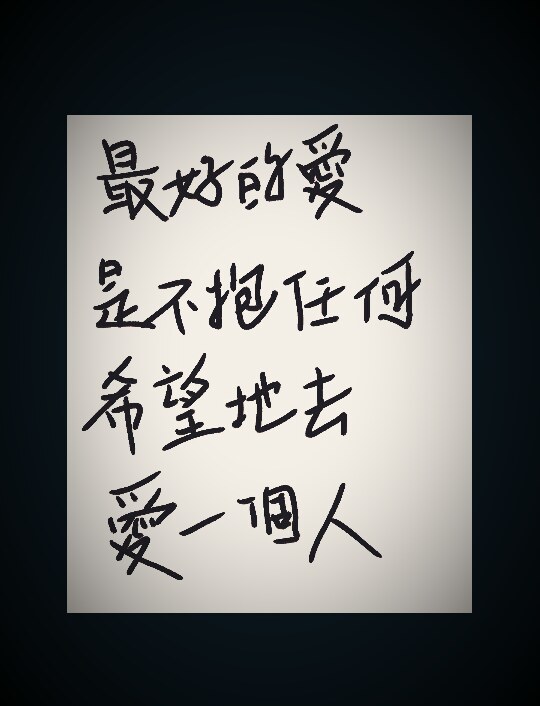 最好的愛
是不抱任何
希望地去
愛一個人